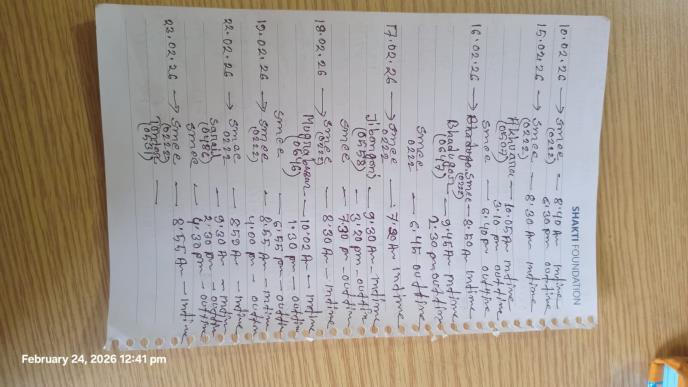 SHAKTI FOUNDATION
10.02.26 → Smee - 8.40 Am Intime
(0222) 6.30 pm outtime
15.02.26 → Smee - 8.30 Am Intime
(0222)
Akhuaria - 10.05 Am Intime
(0507) 3.10 pm outtime
Smee - 6.40 pm outtime
16.02.26 → Smee - 8.50 Am Intime
(0222)
Bhadughor - 9.45 Am Intime
(0647) 2.30 pm outtime
Smee - 6.45 outtime
0222
17.02.26 → Smee - 7.20 Am Intime
0222
- 9:30 Am - Intime
(0558) 3.20 pm - outtime
Smee - 7.30 pm - outtime
18.02.26 → Smee - 8.30 Am - Intime
(0222)
- 10:02 Am - Intime
(0646) 1.30 pm - outtime
Smee - 6.55 pm - outtime
19.02.26 → Smee - 8.55 Am - Intime
(0222) 4.00 pm - outtime
22.02.26 → Smee - 8.50 Am - Intime
0222
Sarail - 9.30 Am - Intime
(0486) 2.30 pm - outtime
Smee - 4.30 pm - outtime
23.02.26 → Smee - 8.55 Am - Intime
(0222)
(0531) -
February 24, 2026 12:41 pm